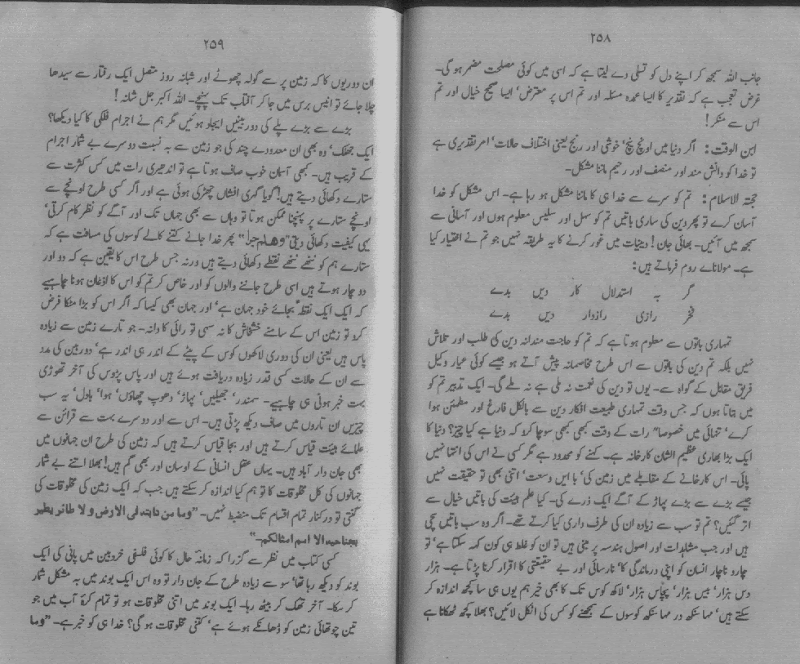 ۲۵۸
جانب اللہ سمجھ کر اپنے دل کو تسلی دے لیتا ہے کہ اسی میں کوئی مصلحت مضمر ہو گی۔
غرض تعجب ہے کہ تقدیر کا ایسا عمدہ مسئلہ اور تم اس پر معترض' ایسا صحیح خیال اور تم
اس سے منکر!
ابن الوقت: اگر دنیا میں اونچ نیچ' خوشی اور رنج یعنی اختلاف حالات' امر تقدیری ہے
تو خدا کو دانش مند اور منصف اور رحیم ماننا مشکل۔
حجتہ الاسلام: تم کو سرے سے خدا ہی کا ماننا مشکل ہو رہا ہے۔ اس مشکل کو خدا
آسان کرے تو پھر دین کی ساری باتیں تم کو سہل اور سلیس معلوم ہوں اور آسانی سے
سمجھ میں آئیں۔ بھائی جان! دینیات میں غور کرنے کا یہ طریقہ نہیں جو تم نے اختیار کیا
ہے۔ مولاناے روم فرماتے ہیں:
گر بہ استدلال کار دیں بدے
فخر رازی رازدار دیں بدے
تمہاری باتوں سے معلوم ہوتا ہے کہ تم کو حاجت مندانہ دین کی طلب اور تلاش
نہیں بلکہ تم دین کی باتوں سے اس طرح مخاصمانہ پیش آتے ہو جیسے کوئی عیار وکیل
فریق مقابل کے گواہ سے۔ یوں تو دین کی نعمت نہ ملی ہے نہ ملے گی۔ ایک تدبیر تم کو
میں بتاتا ہوں کہ جس وقت تمہاری طبیعت افکار دین سے بالکل فارغ اور مطمئن ہوا
کرے' تنہائی میں خصوصاً رات کے وقت کبھی کبھی سوچا کرو کہ دنیا ہے کیا چیز؟ دنیا کا
ایک بڑا بھاری عظیم الشان کارخانہ ہے۔ کہنے کو محدود ہے مگر کسی نے اس کی انتہا نہیں
پائی۔ اس کارخانے کے مقابلے میں زمین کی' با ایں وسعت' اتنی بھی تو حقیقت نہیں
جیسے بڑے سے بڑے پہاڑ کے آگے ایک ذرے کی۔ کیا علم ہیئت کی باتیں خیال سے
اتر گئیں؟ تم تو سب سے زیادہ ان کی طرف داری کیا کرتے تھے۔ اگر وہ سب باتیں سچی
ہیں اور جب مشاہدات اور اصول ہندسہ پر مبنی ہیں تو ان کو غلط ہی کون کہہ سکتا ہے' تو
چارو ناچار انسان کو اپنی درماندگی کا' نارسائی اور بے حقیقتی کا اقرار کرنا پڑتا ہے۔ ہزار
دس ہزار' بیس ہزار' پچاس ہزار' لاکھ کوس تک کا بھی خیر ہم یوں ہی سا کچھ اندازہ کر
سکتے ہیں' مہا سنکھ در مہا سنکھ کوسوں کے سمجھنے کو کس کی اٹکل لائیں؟ بھلا کچھ ٹھکانا ہے
۲۵۹
ان دوریوں کا کہ زمین پر سے گولہ چھوٹے اور شبانہ روز متصل ایک رفتار سے سیدھا
چلا جائے تو انیس برس میں جا کر آفتاب تک پہنچے۔ اللہ اکبر جل شانہ!
بڑے سے بڑے پلے کی دوربینیں ایجاد ہوئیں مگر ہم نے اجرام فلکی کا کیا دیکھا؟
ایک جھلک' وہ بھی ان معدودے چند کی جو زمین سے بہ نسبت دوسرے بے شمار اجرام
کے قریب ہیں۔ کبھی آسمان خوب صاف ہوتا ہے تو اندھیری رات میں کس کثرت سے
ستارے دکھائی دیتے ہیں! گویا گری افشاں چھڑکی ہوئی ہے اور اگر کسی طرح اونچے سے
اونچے ستارے پر پہنچنا ممکن ہوتا تو وہاں سے بھی جہاں تک اور آگے کو نظر کام کرتی'
یہی کیفیت دکھائی دیتی "وھلم جرا" پھر خدا جانے کتنے کالے کوسوں کی مسافت ہے کہ
ستارے ہم کو ننھے ننھے نقطے دکھائی دیتے ہیں ورنہ جس طرح اس کا یقین ہے کہ دو اور
دو چار ہوتے ہیں اسی طرح جاننے والوں کو اور خاص کر تم کو اس کا اذعان ہونا چاہیے
کہ ایک ایک نقطہ بجائے خود جہان ہے' اور جہان بھی کیسا کہ اگر اس کو بڑا مٹکا فرض
کرو تو زمین اس کے سامنے خشخاش کا نہ سہی تو رائی کا دانہ۔ جو تارے زمین سے زیادہ
پاس ہیں یعنی ان کی دوری لاکھوں کوس کے پیٹے کے اندر ہی اندر ہے' دوربین کی مدد
سے ان کے حالات کسی قدر زیادہ دریافت ہوئے ہیں اور پاس پڑوس کی آخر تھوڑی
بہت خبر ہونی ہی چاہیے۔ سمندر' جھیلیں' پہاڑ' دھوپ چھاؤں' ہوا' بادل' یہ سب
چیزیں ان تاروں میں صاف دیکھ پڑتی ہیں۔ اس سے اور دوسرے بہت سے قرائن سے
علمائے ہیئت قیاس کرتے ہیں اور بجا قیاس کرتے ہیں کہ زمین کی طرح ان جہانوں میں
بھی جان دار آباد ہیں۔ یہاں عقل انسانی کے اوسان اور بھی گم ہیں! بھلا اتنے بے شمار
جہانوں کی کل مخلوقات کا تو ہم کیا اندازہ کر سکتے ہیں جب کہ ایک زمین کی مخلوقات کی
گنتی تو درکنار تمام اقسام تک منضبط نہیں۔ "وما من دابتہ فی الارض ولا طائر یطیر
بجناحیہ الا امم امثالکم۔"
کسی کتاب میں نظر سے گزرا کہ زمانہ حال کا کوئی فلسفی خردبین میں پانی کی ایک
بوند کو دیکھ رہا تھا' سو سے زیادہ طرح کے جان دار تو وہ اس ایک بوند میں بہ مشکل شمار
کر سکا۔ آخر تھک کر بیٹھ رہا۔ ایک بوند میں اتنی مخلوقات ہو تو تمام کرہ آب میں جو
تین چوتھائی زمین کو ڈھانکے ہوئے ہے' کتنی مخلوقات ہو گی؟ خدا ہی کو خبر ہے۔ "وما